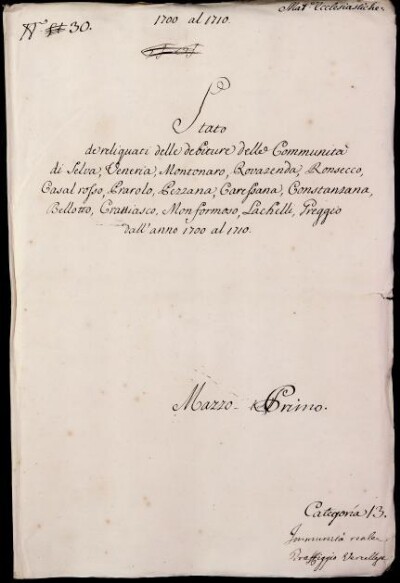 1700 al 1710.
Mat.e Ecclesiastiche
N.o 30.
Stato
de reliquati delle debiture delle Communità
di Selva, Veneria, Montonaro, Rovazenda, Ronsecco,
Casal rosso, Prarolo, Pezzana, Caressana, Constanzana,
Bellotto, Crassiasco, Monformoso, Lachelle, Greggio
dall'anno 1700 al 1710.
Mazzo Primo.
Categoria 13.
Immunità reale
Vercellese